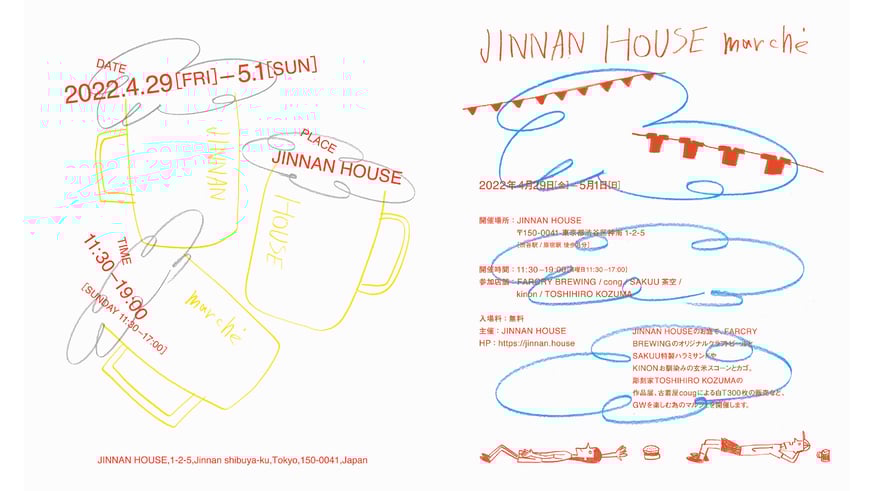 DATE
2022.4.29[FRI]–5.1[SUN]
JINNAN
PLACE
JINNAN HOUSE
HOUSE
TIME
11:30–19:00
[SUNDAY 11:30–17:00]
marché
JINNAN HOUSE,1-2-5,Jinnan shibuya-ku,Tokyo,150-0041,Japan
JINNAN HOUSE marché
2022年4月29日[金]–5月1日[日]
開催場所：JINNAN HOUSE
〒150-0041 東京都渋谷区神南 1-2-5
[渋谷駅 / 原宿駅 徒歩 分]
開催時間：11:30–19:00[日曜日11:30–17:00]
参加店舗：FARCRY BREWING / cong / SAKUU 茶空 /
kinon / TOSHIHIRO KOZUMA
入場料：無料
主催：JINNAN HOUSE
HP：https://jinnan.house
JINNAN HOUSEのお庭で、FARCRY
BREWINGのオリジナルクラフトビールと
SAKUU特製ハラミサンドや
KINONお馴染みの玄米スコーンとカゴ。
彫刻家TOSHIHIRO KOZUMAの
作品展、古着屋cougによる白T300枚の販売など。
GWを楽しむ為のマルシェを開催します。